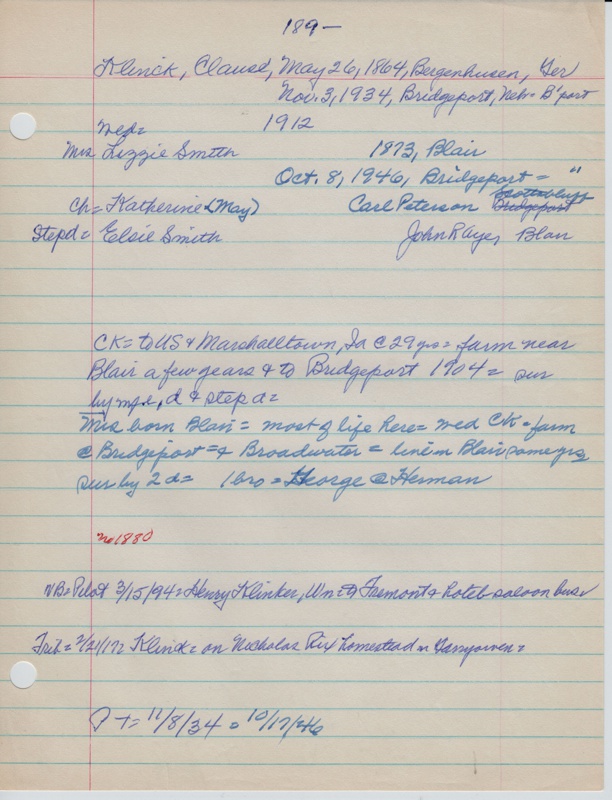 189-
Klinck, Claus, May 26, 1864, Bergenhusen, Ger
Nov. 3, 1934, Bridgeport, Neb= B'port
wed= 1912
Mrs Lizzie Smith 1873, Blair
Oct. 8, 1946, Bridgeport = "
Scottsbluff
Ch= Katherine (May) Carl Peterson Bridgeport
Stepd= Elsie Smith John R Ayer, Blair
CK= to US & Marshalltown, Ia @ 29 yrs = farm near
Blair a few years & to Bridgeport 1904= sur
by wife, d & step d=
Mrs born Blair = most of life here= wed CK= farm
@ Bridgeport = & Broadwater = live in Blair some yrs
sur by 2 d= 1 bro = George @ Herman
no 1880
NB= Pilot 3/15/94= Henry Klinker, Wn= to Fremont & hotel= saloon bus=
Trib= 2/21/17= Klinck= on Nicholas Rix homestead Garryowen=
PT= 11/8/34 = 10/17/46